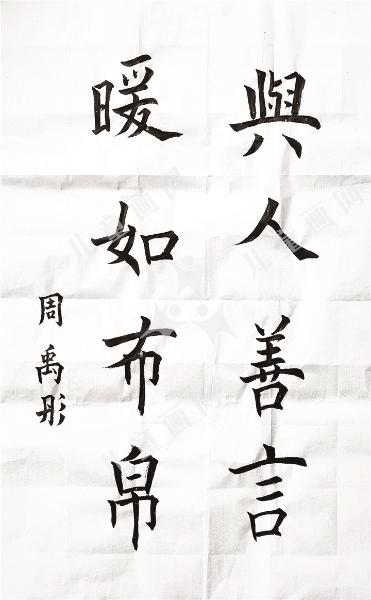 與人善言
暖如布帛
周禹彤